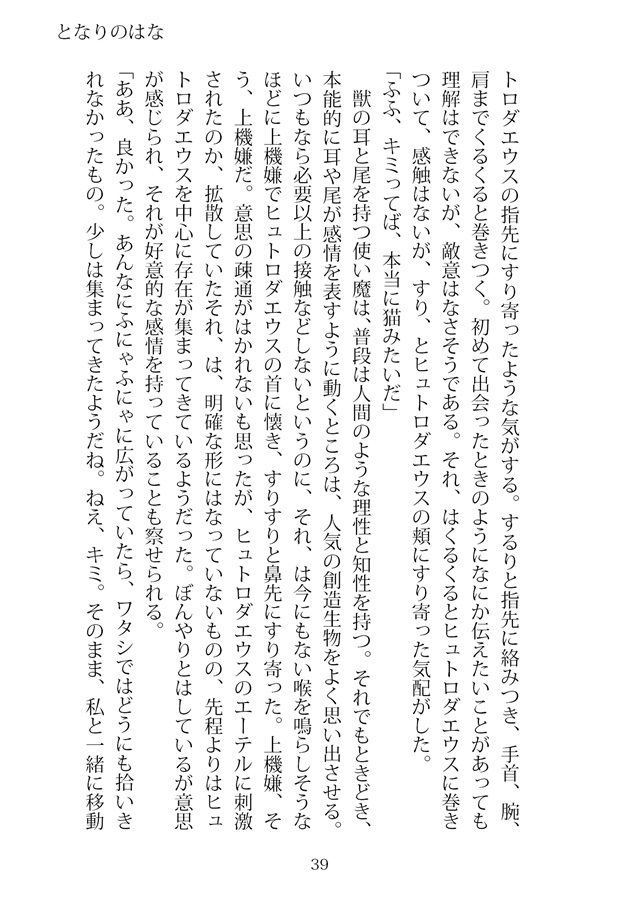 となりのはな
トロダエウスの指先にすり寄ったような気がする。するりと指先に絡みつき、手首、腕、
肩までくるくると巻きつく。初めて出会ったときのようになにか伝えたいことがあっても
理解はできないが、敵意はなさそうである。それ、はくるくるとヒュトロダエウスに巻き
ついて、感触はないが、すり、とヒュトロダエウスの頬にすり寄った気配がした。
「ふふ、キミってば、本当に猫みたいだ」
獣の耳と尾を持つ使い魔は、普段は人間のような理性と知性を持つ。それでもときどき、
本能的に耳や尾が感情を表すように動くところは、人気の創造生物をよく思い出させる。
いつもなら必要以上の接触などしないというのに、それ、は今にもない喉を鳴らしそうな
ほどに上機嫌でヒュトロダエウスの首に懐き、すりすりと鼻先にすり寄った。上機嫌、そ
う、上機嫌だ。意思の疎通がはかれないも思ったが、ヒュトロダエウスのエーテルに刺激
されたのか、拡散していたそれ、は、明確な形にはなっていないものの、先程よりはヒュ
トロダエウスを中心に存在が集まってきているようだった。ぼんやりとはしているが意思
が感じられ、それが好意的な感情を持っていることも察せられる。
「ああ、良かった。あんなにふにゃふにゃに広がっていたら、ワタシではどうにも拾いき
れなかったもの。少しは集まってきたようだね。ねえ、キミ。そのまま、私と一緒に移動
39